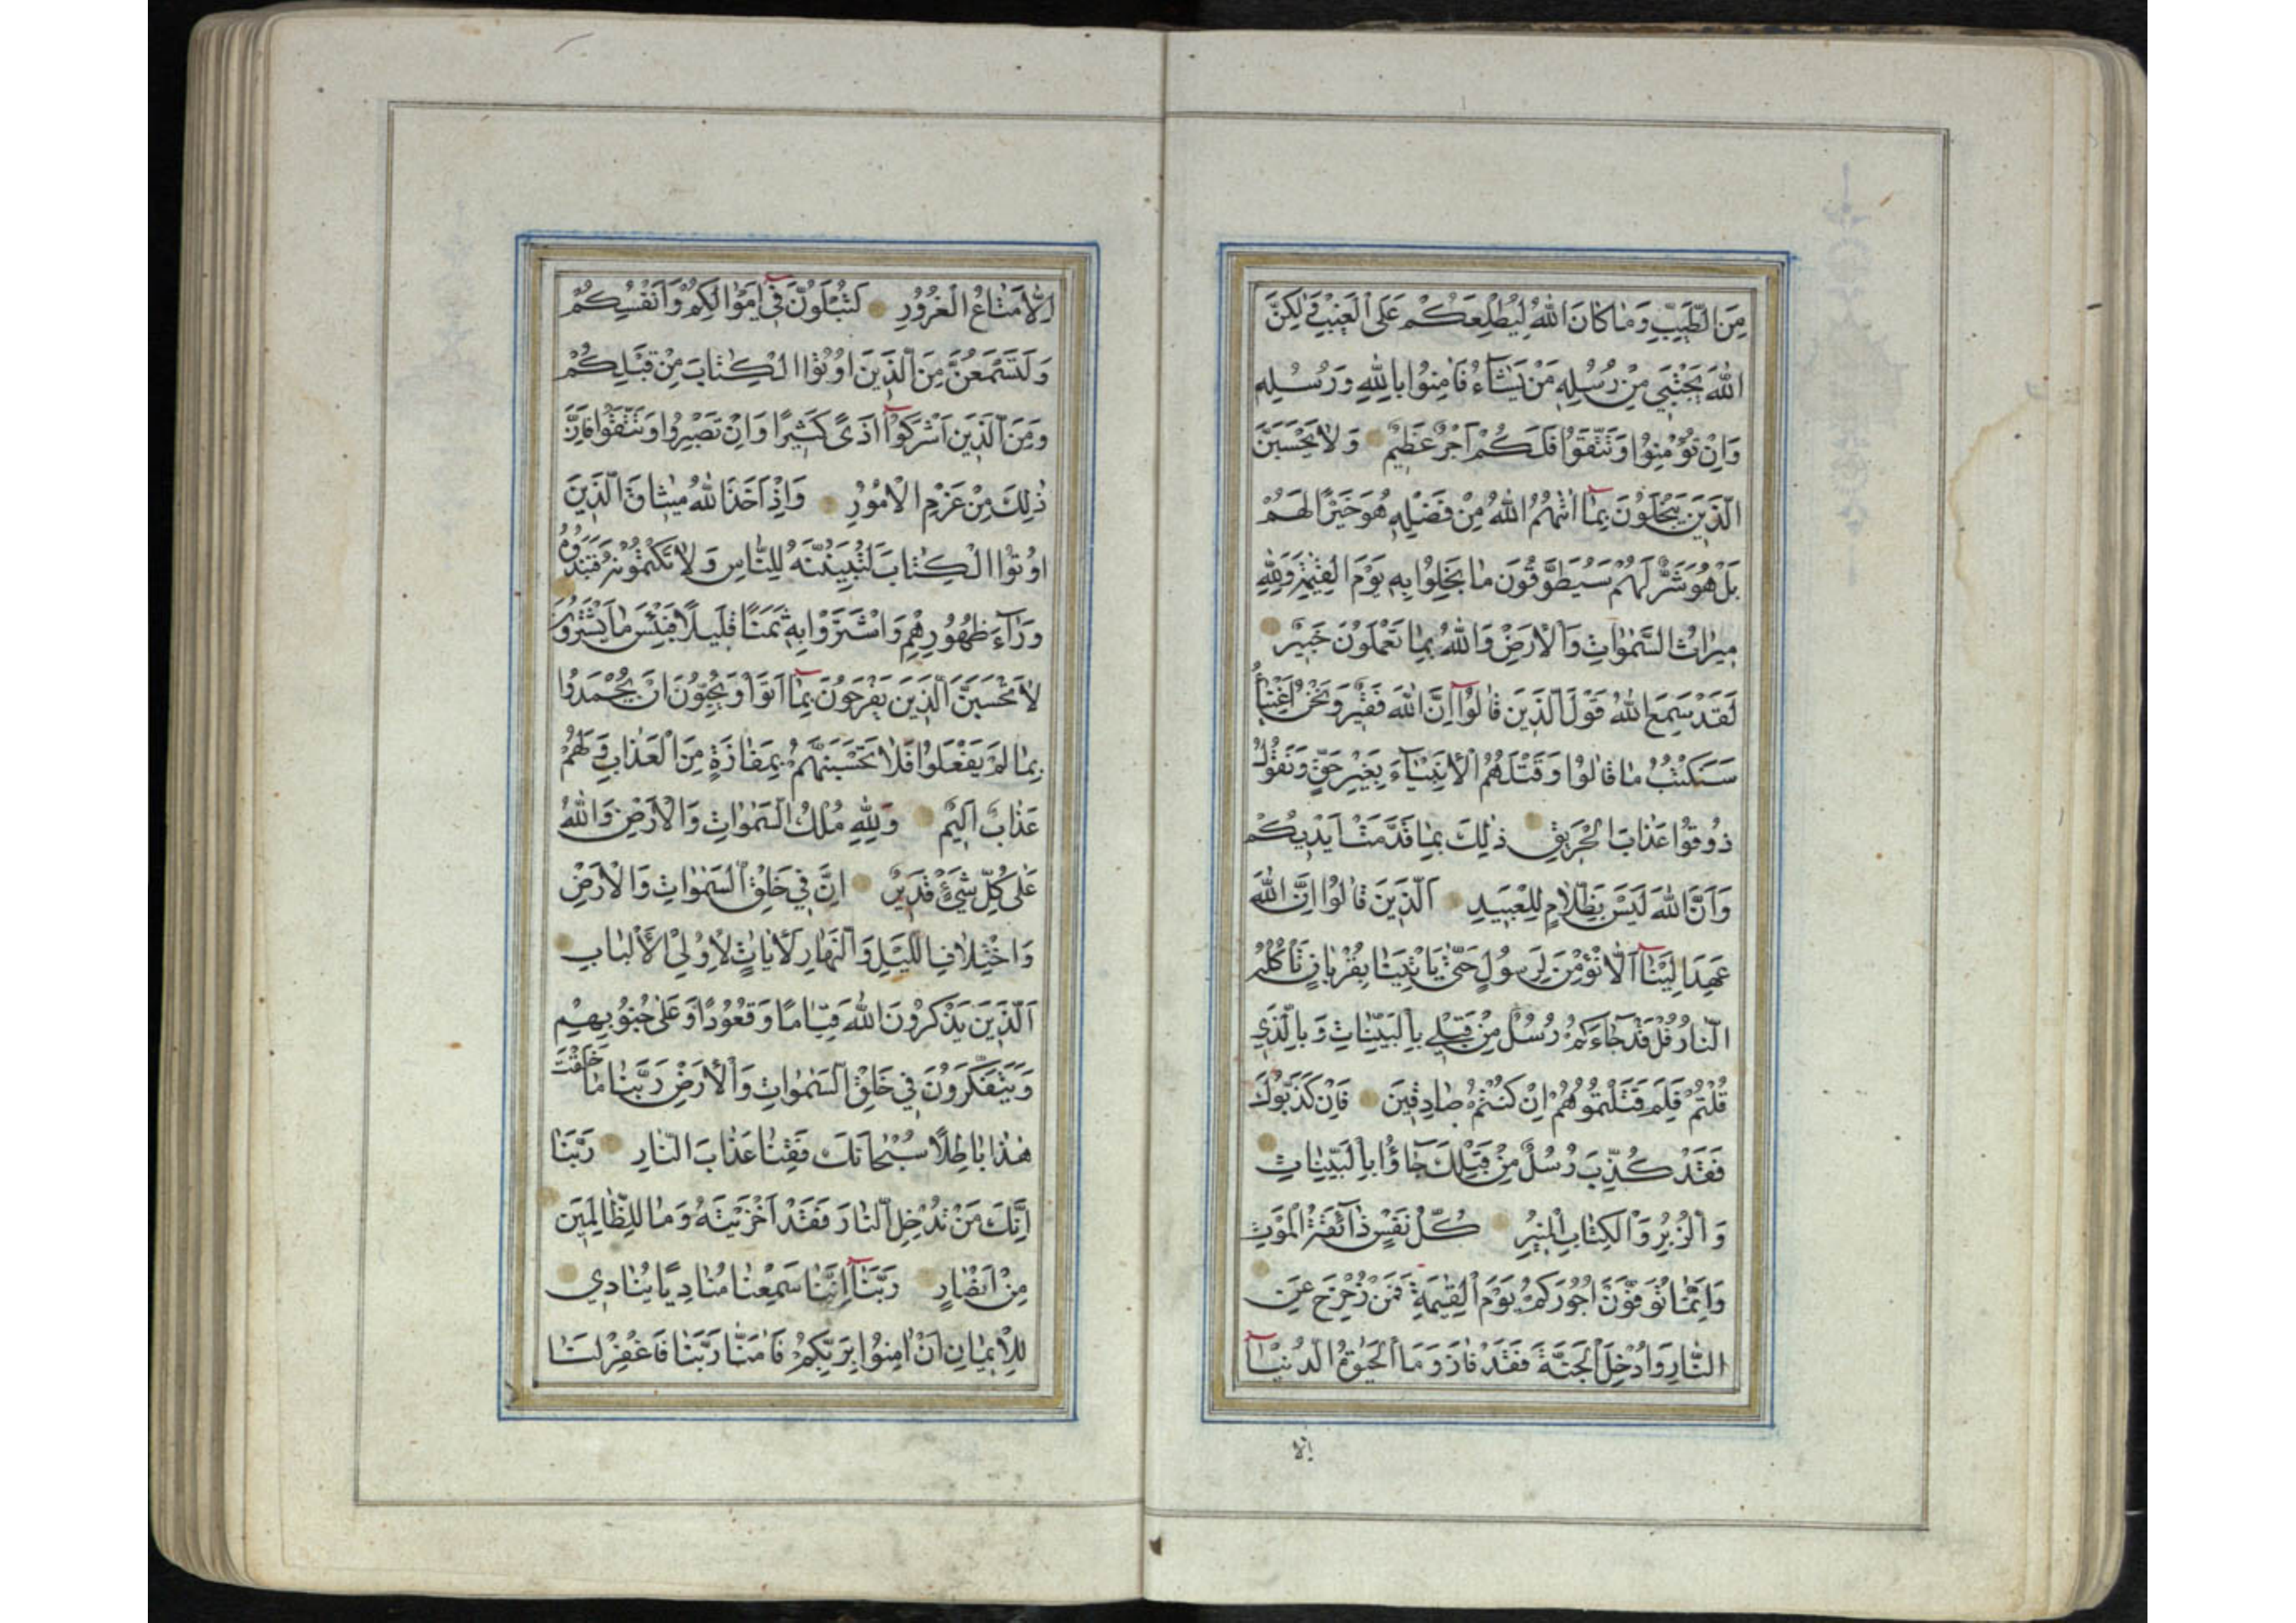 مِنَ الطَّيِّبِ وَمَا كَانَ اللهُ لِيُطْلِعَكُمْ عَلَى الْغَيْبِ وَلٰكِنَّ
اللهَ يَجْتَبِي مِنْ رُسُلِهِ مَنْ يَشَآءُ فَاٰمِنُوا بِاللهِ وَرُسُلِهِ
وَاِنْ تُؤْمِنُوا وَتَتَّقُوا فَلَكُمْ اَجْرٌ عَظِيمٌ وَلَا يَحْسَبَنَّ
الَّذِينَ يَبْخَلُونَ بِمَآ اٰتٰيهُمُ اللهُ مِنْ فَضْلِهِ هُوَ خَيْرًا لَهُمْ
بَلْ هُوَ شَرٌّ لَهُمْ سَيُطَوَّقُونَ مَا بَخِلُوا بِهِ يَوْمَ الْقِيٰمَةِ وَلِلّٰهِ
مِيرَاثُ السَّمٰوَاتِ وَالْاَرْضِ وَاللهُ بِمَا تَعْمَلُونَ خَبِيرٌ
لَقَدْ سَمِعَ اللهُ قَوْلَ الَّذِينَ قَالُوآ اِنَّ اللهَ فَقِيرٌ وَنَحْنُ اَغْنِيَآءُ
سَنَكْتُبُ مَا قَالُوا وَقَتْلَهُمُ الْاَنْبِيَآءَ بِغَيْرِ حَقٍّ وَنَقُولُ
ذُوقُوا عَذَابَ الْحَرِيقِ ذٰلِكَ بِمَا قَدَّمَتْ اَيْدِيكُمْ
وَاَنَّ اللهَ لَيْسَ بِظَلَّامٍ لِلْعَبِيدِ اَلَّذِينَ قَالُوا اِنَّ اللهَ
عَهِدَ اِلَيْنَآ اَلَّا نُؤْمِنَ لِرَسُولٍ حَتّٰى يَاْتِيَنَا بِقُرْبَانٍ تَاْكُلُهُ
النَّارُ قُلْ قَدْ جَآءَكُمْ رُسُلٌ مِنْ قَبْلِي بِالْبَيِّنَاتِ وَبِالَّذِي
قُلْتُمْ فَلِمَ قَتَلْتُمُوهُمْ اِنْ كُنْتُمْ صَادِقِينَ فَاِنْ كَذَّبُوكَ
فَقَدْ كُذِّبَ رُسُلٌ مِنْ قَبْلِكَ جَآؤُا بِالْبَيِّنَاتِ
وَالزُّبُرِ وَالْكِتَابِ الْمُنِيرِ كُلُّ نَفْسٍ ذَآئِقَةُ الْمَوْتِ
وَاِنَّمَا تُوَفَّوْنَ اُجُورَكُمْ يَوْمَ الْقِيٰمَةِ فَمَنْ زُحْزِحَ عَنِ
النَّارِ وَاُدْخِلَ الْجَنَّةَ فَقَدْ فَازَ وَمَا الْحَيٰوةُ الدُّنْيَآ
اِلَّا
اِلَّا مَتَاعُ الْغُرُورِ لَتُبْلَوُنَّ فِىٓ اَمْوَالِكُمْ وَاَنْفُسِكُمْ
وَلَتَسْمَعُنَّ مِنَ الَّذِينَ اُوتُوا الْكِتَابَ مِنْ قَبْلِكُمْ
وَمِنَ الَّذِينَ اَشْرَكُوآ اَذًى كَثِيرًا وَاِنْ تَصْبِرُوا وَتَتَّقُوا فَاِنَّ
ذٰلِكَ مِنْ عَزْمِ الْاُمُورِ وَاِذْ اَخَذَ اللهُ مِيثَاقَ الَّذِينَ
اُوتُوا الْكِتَابَ لَتُبَيِّنُنَّهُ لِلنَّاسِ وَلَا تَكْتُمُونَهُ فَنَبَذُوهُ
وَرَآءَ ظُهُورِهِمْ وَاشْتَرَوْا بِهِ ثَمَنًا قَلِيلًا فَبِئْسَ مَا يَشْتَرُونَ
لَا تَحْسَبَنَّ الَّذِينَ يَفْرَحُونَ بِمَآ اَتَوْا وَيُحِبُّونَ اَنْ يُحْمَدُوا
بِمَا لَمْ يَفْعَلُوا فَلَا تَحْسَبَنَّهُمْ بِمَفَازَةٍ مِنَ الْعَذَابِ وَلَهُمْ
عَذَابٌ اَلِيمٌ وَلِلّٰهِ مُلْكُ السَّمٰوَاتِ وَالْاَرْضِ وَاللهُ
عَلٰى كُلِّ شَيْءٍ قَدِيرٌ اِنَّ فِي خَلْقِ السَّمٰوَاتِ وَالْاَرْضِ
وَاخْتِلَافِ اللَّيْلِ وَالنَّهَارِ لَاٰيَاتٍ لِاُولِي الْاَلْبَابِ
اَلَّذِينَ يَذْكُرُونَ اللهَ قِيَامًا وَقُعُودًا وَعَلٰى جُنُوبِهِمْ
وَيَتَفَكَّرُونَ فِي خَلْقِ السَّمٰوَاتِ وَالْاَرْضِ رَبَّنَا مَا خَلَقْتَ
هٰذَا بَاطِلًا سُبْحَانَكَ فَقِنَا عَذَابَ النَّارِ رَبَّنَا
اِنَّكَ مَنْ تُدْخِلِ النَّارَ فَقَدْ اَخْزَيْتَهُ وَمَا لِلظَّالِمِينَ
مِنْ اَنْصَارٍ رَبَّنَآ اِنَّنَا سَمِعْنَا مُنَادِيًا يُنَادِي
لِلْاِيمَانِ اَنْ اٰمِنُوا بِرَبِّكُمْ فَاٰمَنَّا رَبَّنَا فَاغْفِرْ لَنَا